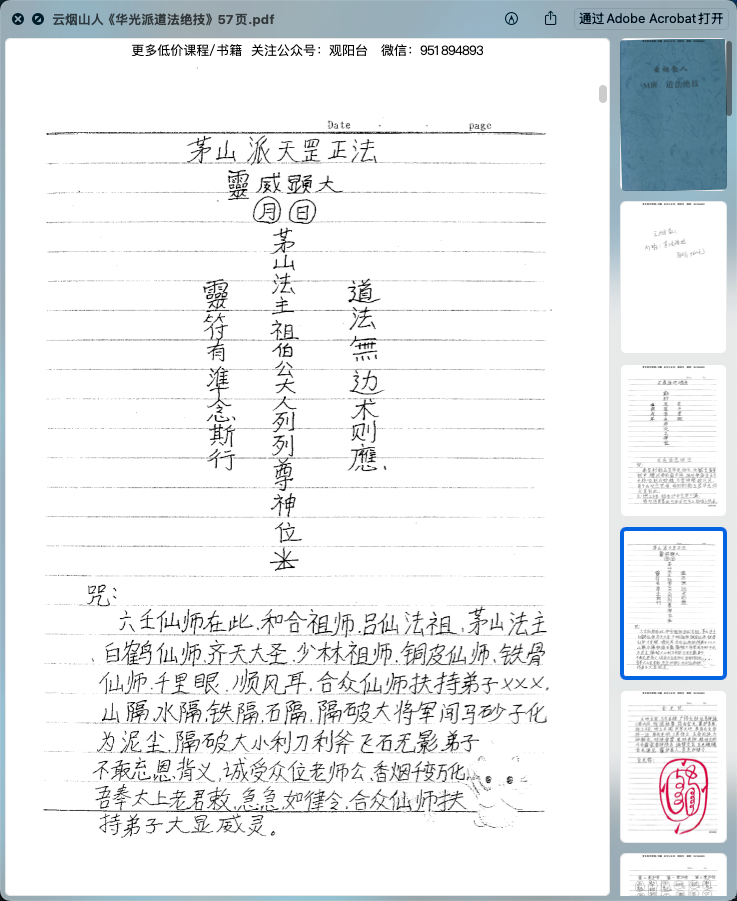 云烟山人《华光派道法绝技》57页.pdf
通过Adobe Acrobat打开
更多低价课程/书籍 关注公众号：观阳台 微信：951894893
Date - - page
茅山派天罡正法
靈威顕大
月 日
茅山法主祖伯公大人列列尊神位
道法無边术则應.
靈符有準念斯行
咒：
六壬仙师在此.和合祖师.吕仙法祖.茅山法主
白鹤仙师.齐天大圣.少林祖师.铜皮仙师.铁骨
仙师.千里眼.顺风耳.合众仙师扶持弟子×××.
山隔.水隔.铁隔.石隔.隔破大将军间马砂子化
为泥尘.隔破大小利刀利斧飞石无影弟子
不敢忘恩.背义.诚受众位老师公.香烟千变万化.
吾奉太上老君敕.急急如律令.合众仙师扶
持弟子大显威灵。